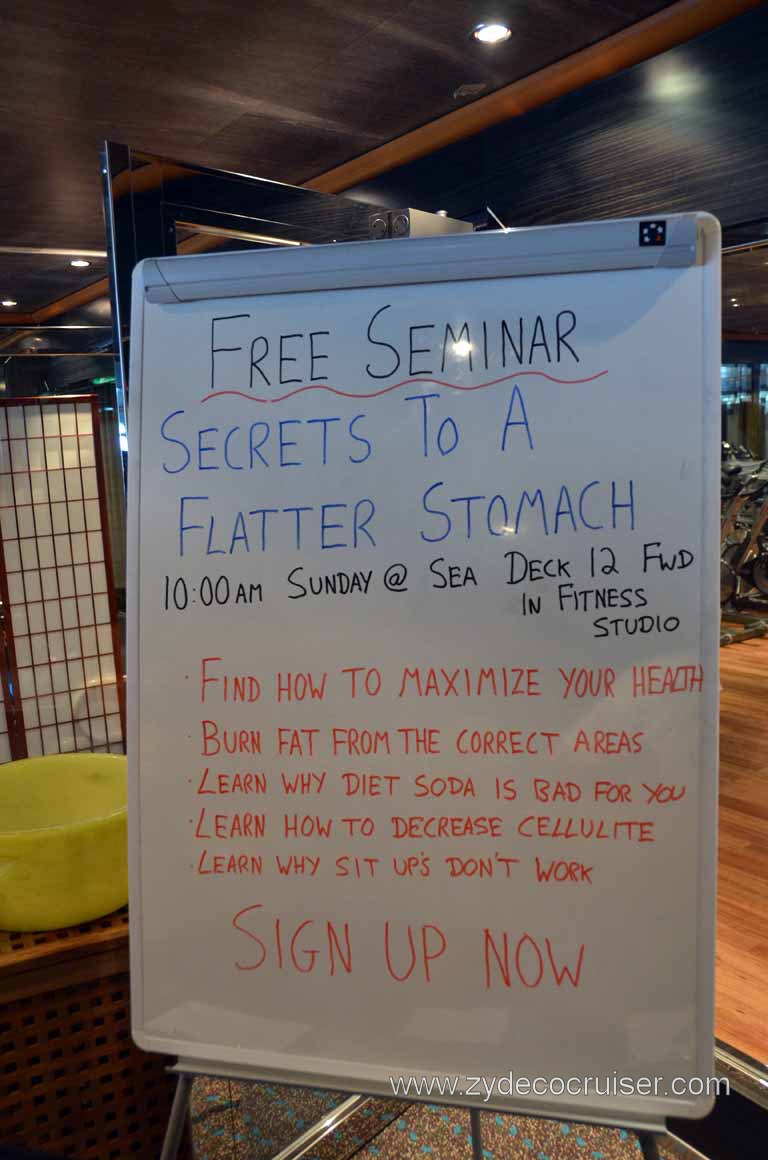 FREE SEMINAR
SECRETS TO A
FLATTER STOMACH
10:00AM SUNDAY @ SEA DECK 12 FWD
IN FITNESS
STUDIO
· FIND HOW TO MAXIMIZE YOUR HEALTH
· BURN FAT FROM THE CORRECT AREAS
· LEARN WHY DIET SODA IS BAD FOR YOU
· LEARN HOW TO DECREASE CELLULITE
· LEARN WHY SIT UP'S DON'T WORK
SIGN UP NOW
www.zydecocruiser.com